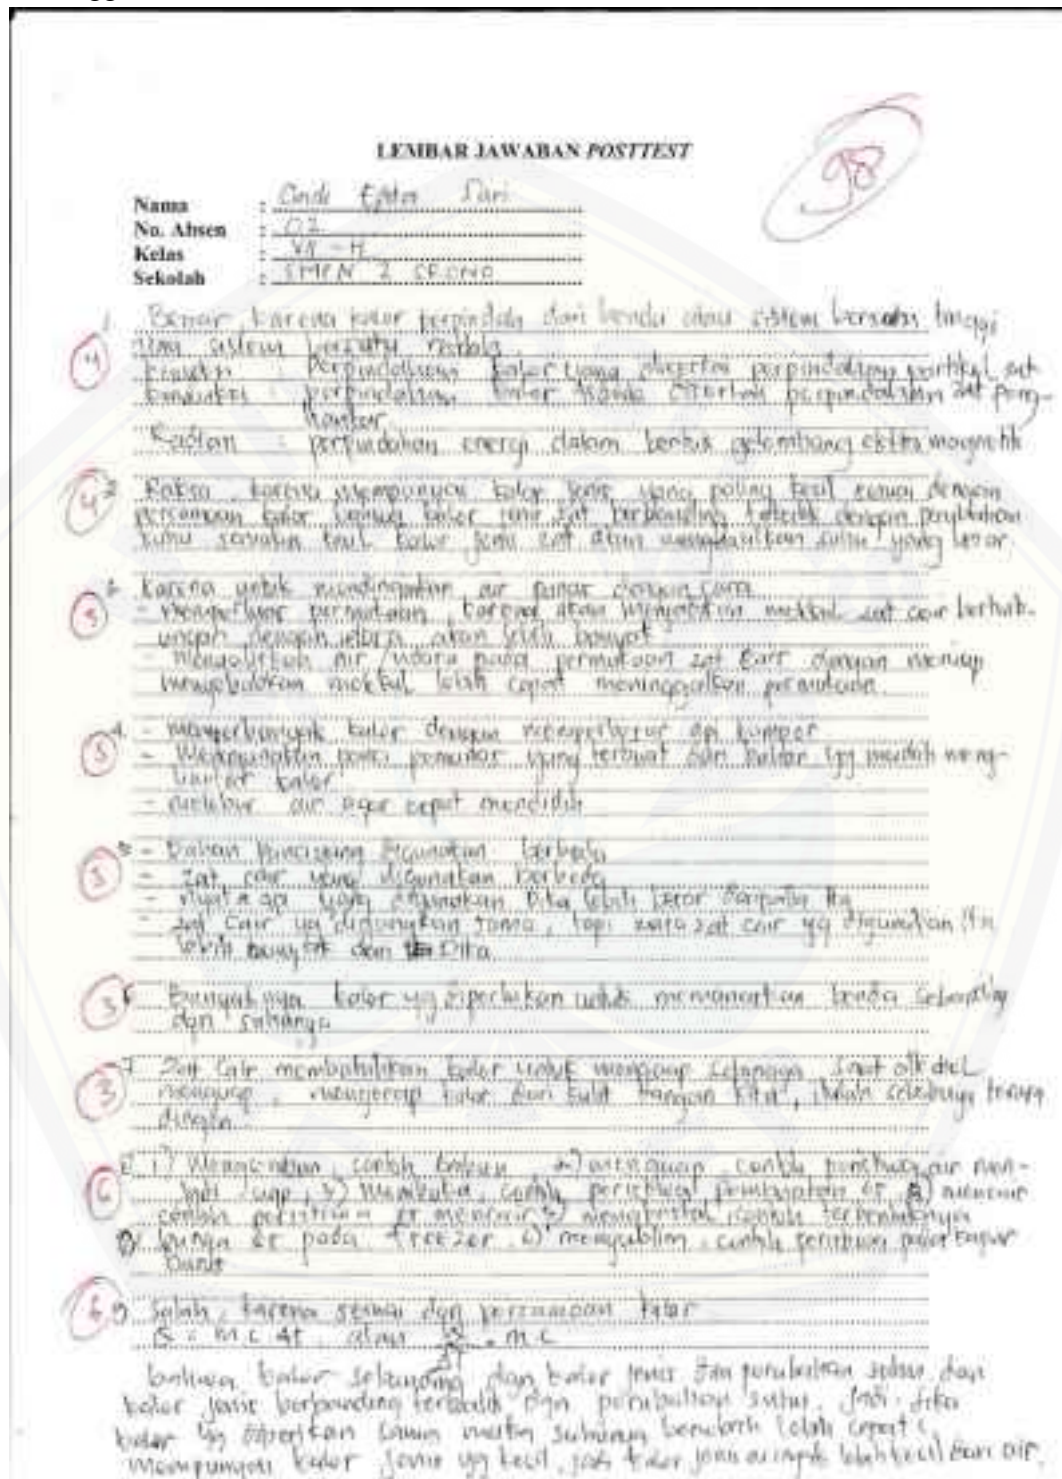 LEMBAR JAWABAN POSTTEST
98
Nama :
No. Absen : 02
Kelas : VII - H
Sekolah : SMPN 2
1. Benar, karena kalor berpindah dari benda atau sistem bersuhu tinggi
sistem bersuhu rendah
4
Konveksi : Perpindahan kalor yang disertai perpindahan partikel zat
Konduksi : perpindahan kalor tanpa disertai perpindahan zat peng-
hantar
Radiasi : perpindahan energi dalam bentuk gelombang elektromagnetik
4
Raksa, karena mempunyai kalor jenis yang paling kecil sesuai dengan
persamaan kalor bahwa kalor jenis zat berbanding terbalik dengan perubahan
suhu semakin kecil kalor jenis zat akan menghasilkan suhu yang besar.
Karena untuk mendinginkan air panas dengan cara
- memperluas permukaan, karena akan menyebabkan molekul zat cair berhub-
ungan dengan udara akan lebih banyak
- Mengalirkan air/udara pada permukaan zat cair dengan meniup
menyebabkan molekul lebih cepat meninggalkan permukaan.
4. - memperbanyak kalor dengan memperbesar api kompor
- Menggunakan panci pemanas yang terbuat dari bahan yg mudah meng-
hantar kalor
- air agar cepat mendidih
- Bahan panci yang digunakan berbeda
- zat cair yang digunakan berbeda
- nyala api yang digunakan Dita lebih besar daripada Ita
- zat cair yg digunakan sama, tapi zat cair yg digunakan Ita
lebih banyak dari Dita
Banyaknya kalor yg diperlukan untuk memanaskan benda sebanding
dgn suhunya
7. Zat cair membutuhkan kalor untuk menguap sehingga saat alkohol
menguap, menyerap kalor dari kulit tangan kita, itulah sebabnya terasa
dingin.
6
1) Mengembun, contoh embun, 2) menguap, contoh peristiwa air men-
jadi uap, 3) Membeku, contoh peristiwa pembuatan es 4) mencair
contoh peristiwa es mencair 5) mengkristal, contoh terbentuknya
bunga es pada freezer, 6) menyublim, contoh peristiwa pada kapur
barus
6
9. Salah, karena sesuai dgn persamaan kalor
Q = m c Δt, atau Q/ΔT = m.c
bahwa kalor sebanding dgn kalor jenis dan perubahan suhu, dan
kalor jenis berbanding terbalik dgn perubahan suhu. Jadi jika
kalor yg diberikan sama maka suhunya berubah lebih cepat
mempunyai kalor jenis yg kecil, jadi kalor jenis minyak lebih kecil dari air.